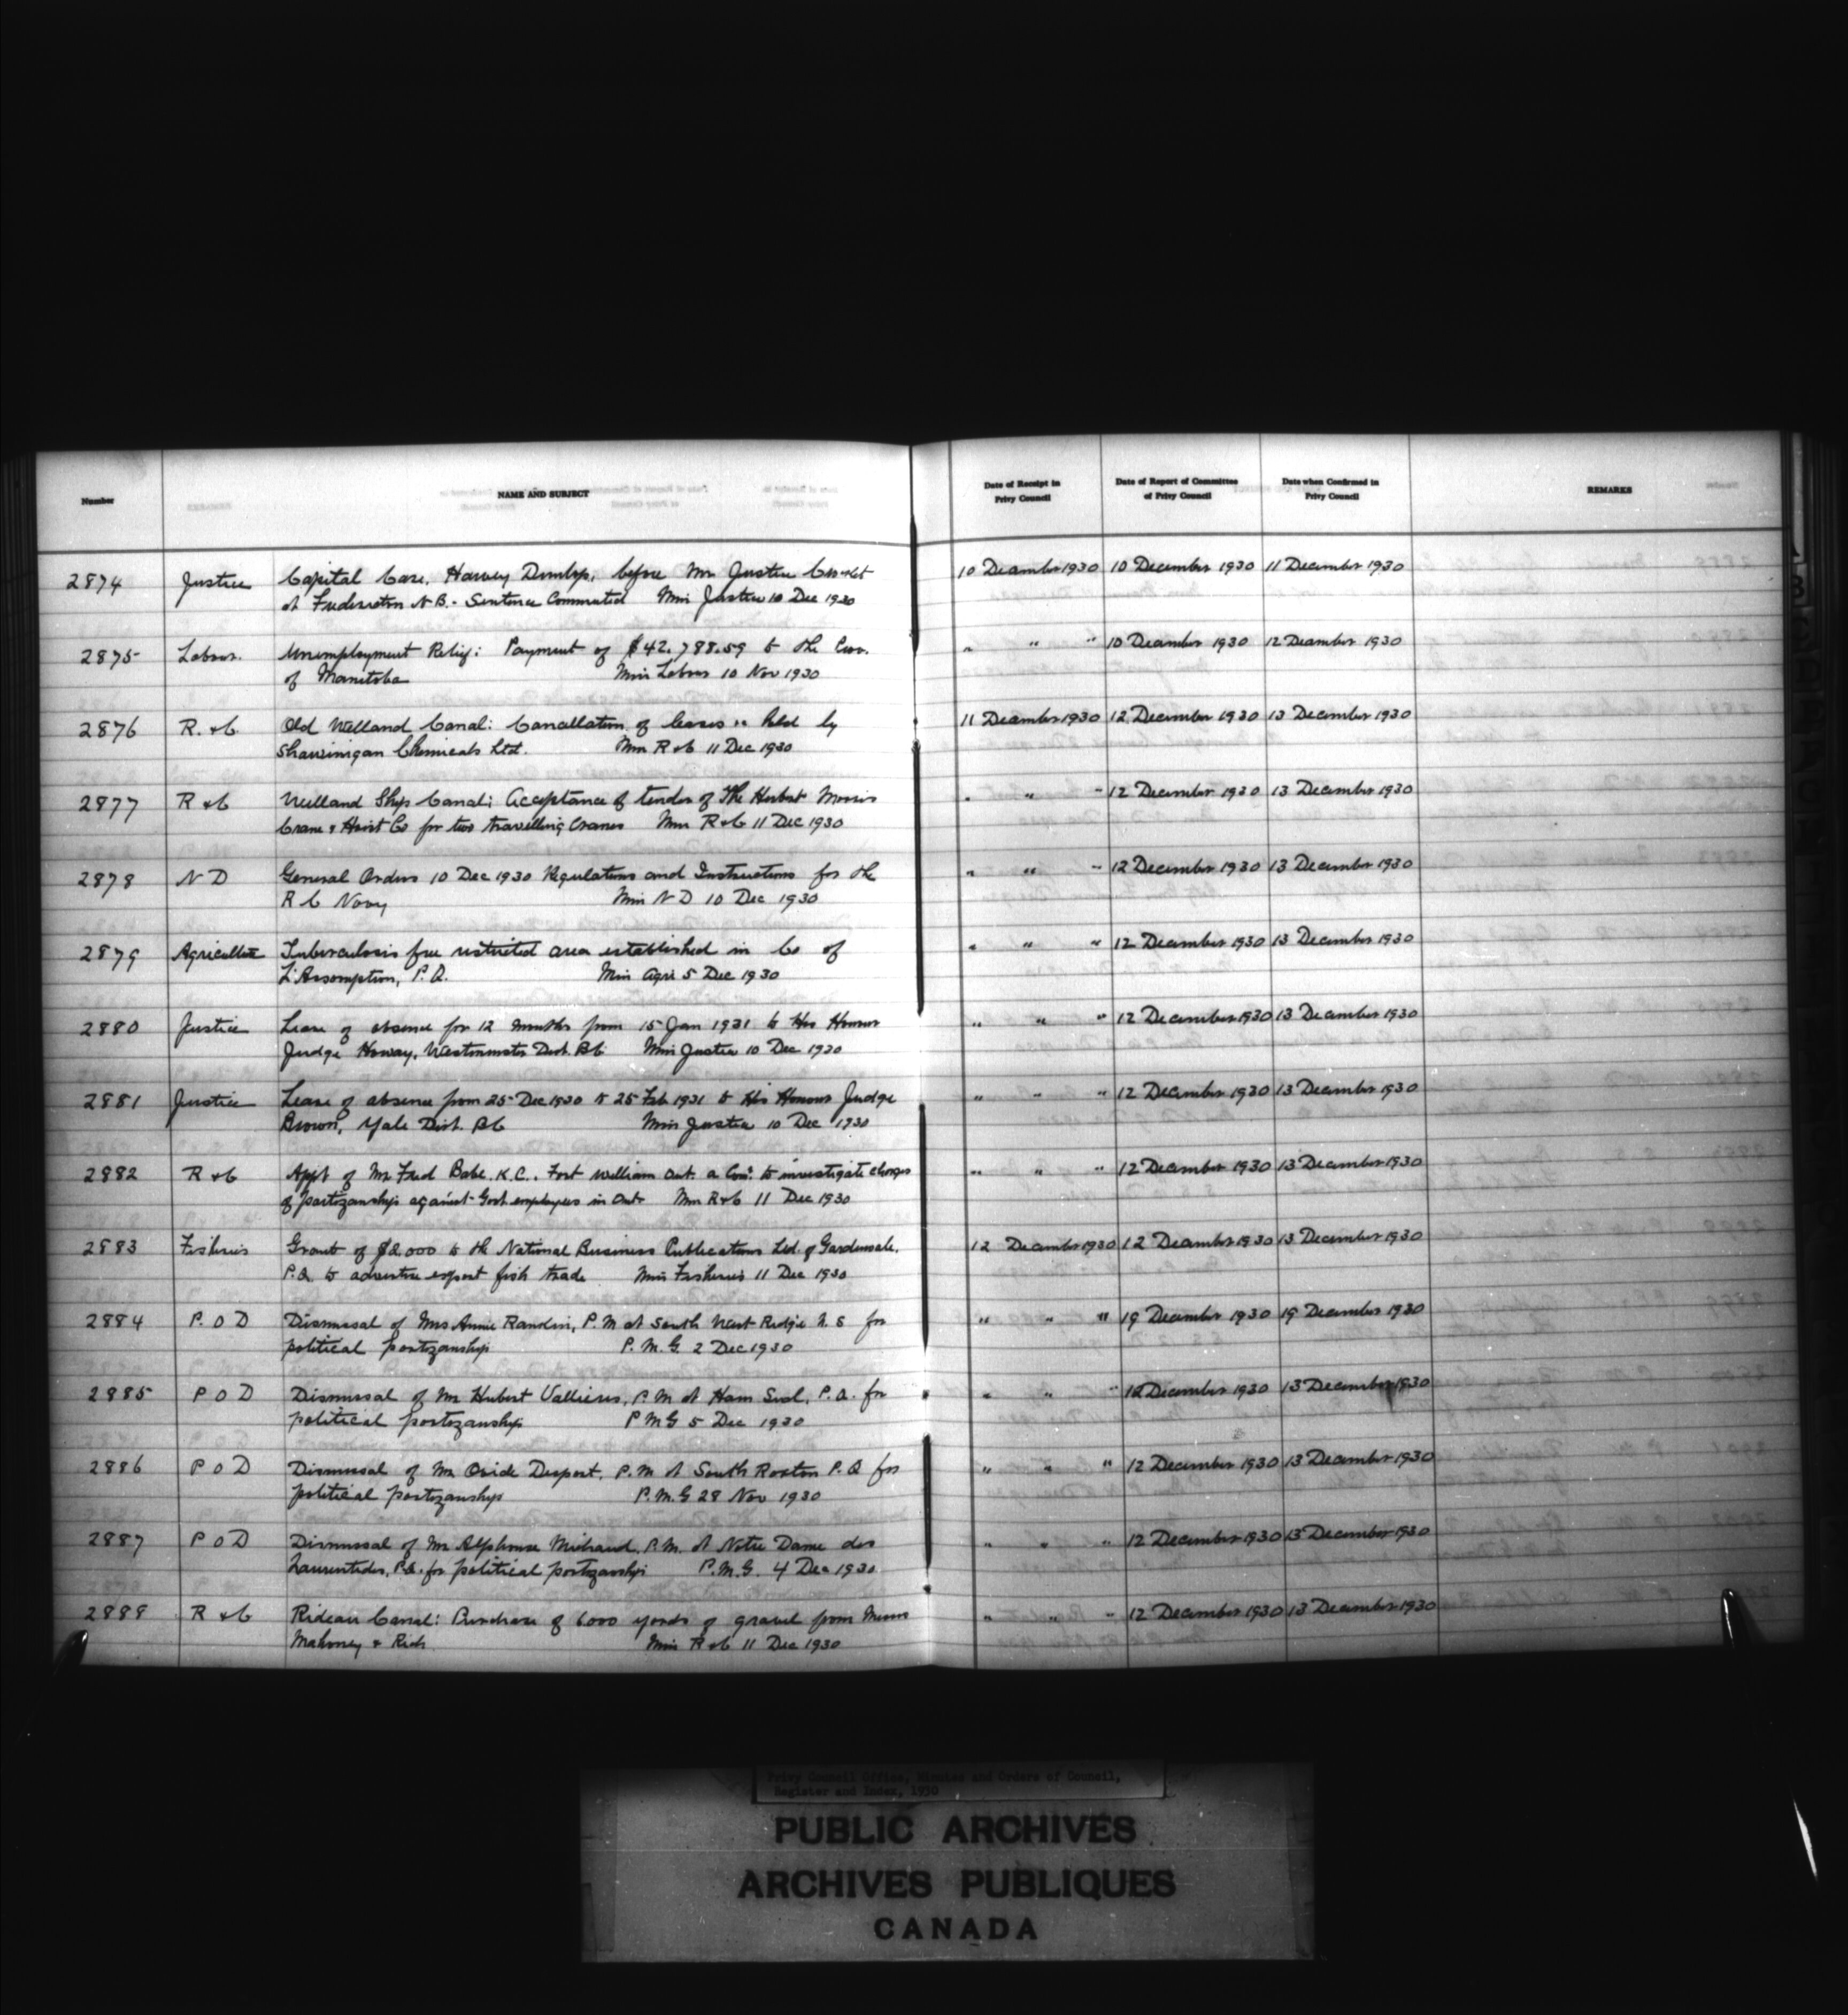 Number
NAME AND SUBJECT
Date of Receipt in
Privy Council
Date of Report of Committee
of Privy Council
Date when Confirmed in
Privy Council
REMARKS
2874 Justice Capital Case, Harvey Dunlop, before Mr Justice
at Fredericton N.B. - Sentence Commuted Min Justice 10 Dec 1930
10 December 1930 10 December 1930 11 December 1930
2875 Labour. Unemployment Relief: Payment of $42,788.59 to the Prov.
of Manitoba Min Labour 10 Nov 1930
" " " 10 December 1930 12 December 1930
2876 R. & C. Old Welland Canal: Cancellation of leases held by
Shawinigan Chemicals Ltd. Min R & C 11 Dec 1930
11 December 1930 12 December 1930 13 December 1930
2877 R & C Welland Ship Canal: Acceptance of tender of The Herbert Morris
Crane & Hoist Co for two travelling Cranes Min R & C 11 Dec 1930
" " " 12 December 1930 13 December 1930
2878 N D General Orders 10 Dec 1930 Regulations and Instructions for the
R C Navy Min N D 10 Dec 1930
" " " 12 December 1930 13 December 1930
2879 Agriculture Tuberculosis free restricted area established in Co of
L'Assomption, P.Q. Min Agri 5 Dec 1930
" " " 12 December 1930 13 December 1930
2880 Justice Leave of absence for 12 months from 15 Jan 1931 to His Honour
Judge Howay, Westminster Dist. BC Min Justice 10 Dec 1930
" " " 12 December 1930 13 December 1930
2881 Justice Leave of absence from 25 Dec 1930 to 25 Feb 1931 to His Honour Judge
Brown, Yale Dist. BC Min Justice 10 Dec 1930
" " " 12 December 1930 13 December 1930
2882 R & C Appt of Mr Fred Babe, K.C., Fort William Ont. a to investigate charges
of partizanship against Govt employees in Ont Min R & C 11 Dec 1930
" " " 12 December 1930 13 December 1930
2883 Fisheries Grant of $2,000 to the National Business Publications Ltd. of Gardenvale,
P.Q. to advertise export fish trade Min Fisheries 11 Dec 1930
12 December 1930 12 December 1930 13 December 1930
2884 P. O D Dismissal of Mrs Annie Rankin, P.M at South West Ridge N.S for
political partizanship P.M.G. 2 Dec 1930
" " " 19 December 1930 19 December 1930
2885 P O D Dismissal of Mr Hubert Vallieres, P.M at Ham Sud, P.Q. for
political partizanship P M G 5 Dec 1930
" " " 12 December 1930 13 December 1930
2886 P O D Dismissal of Mr Ovide P.M at South Roxton P.Q for
political partizanship P.M.G 28 Nov 1930
" " " 12 December 1930 13 December 1930
2887 P O D Dismissal of Mr Alphonse Michaud, P.M. at Notre Dame des
Laurentides, P.Q. for political partizanship P.M.G. 4 Dec 1930
" " " 12 December 1930 13 December 1930
2888 R & C Rideau Canal: Purchase of 6000 yards of gravel from Messrs
Mahoney & Rich Min R & C 11 Dec 1930
" " " 12 December 1930 13 December 1930
Privy Council Office, Minutes and Orders of Council,
Register and Index, 1930
PUBLIC ARCHIVES
ARCHIVES PUBLIQUES
CANADA